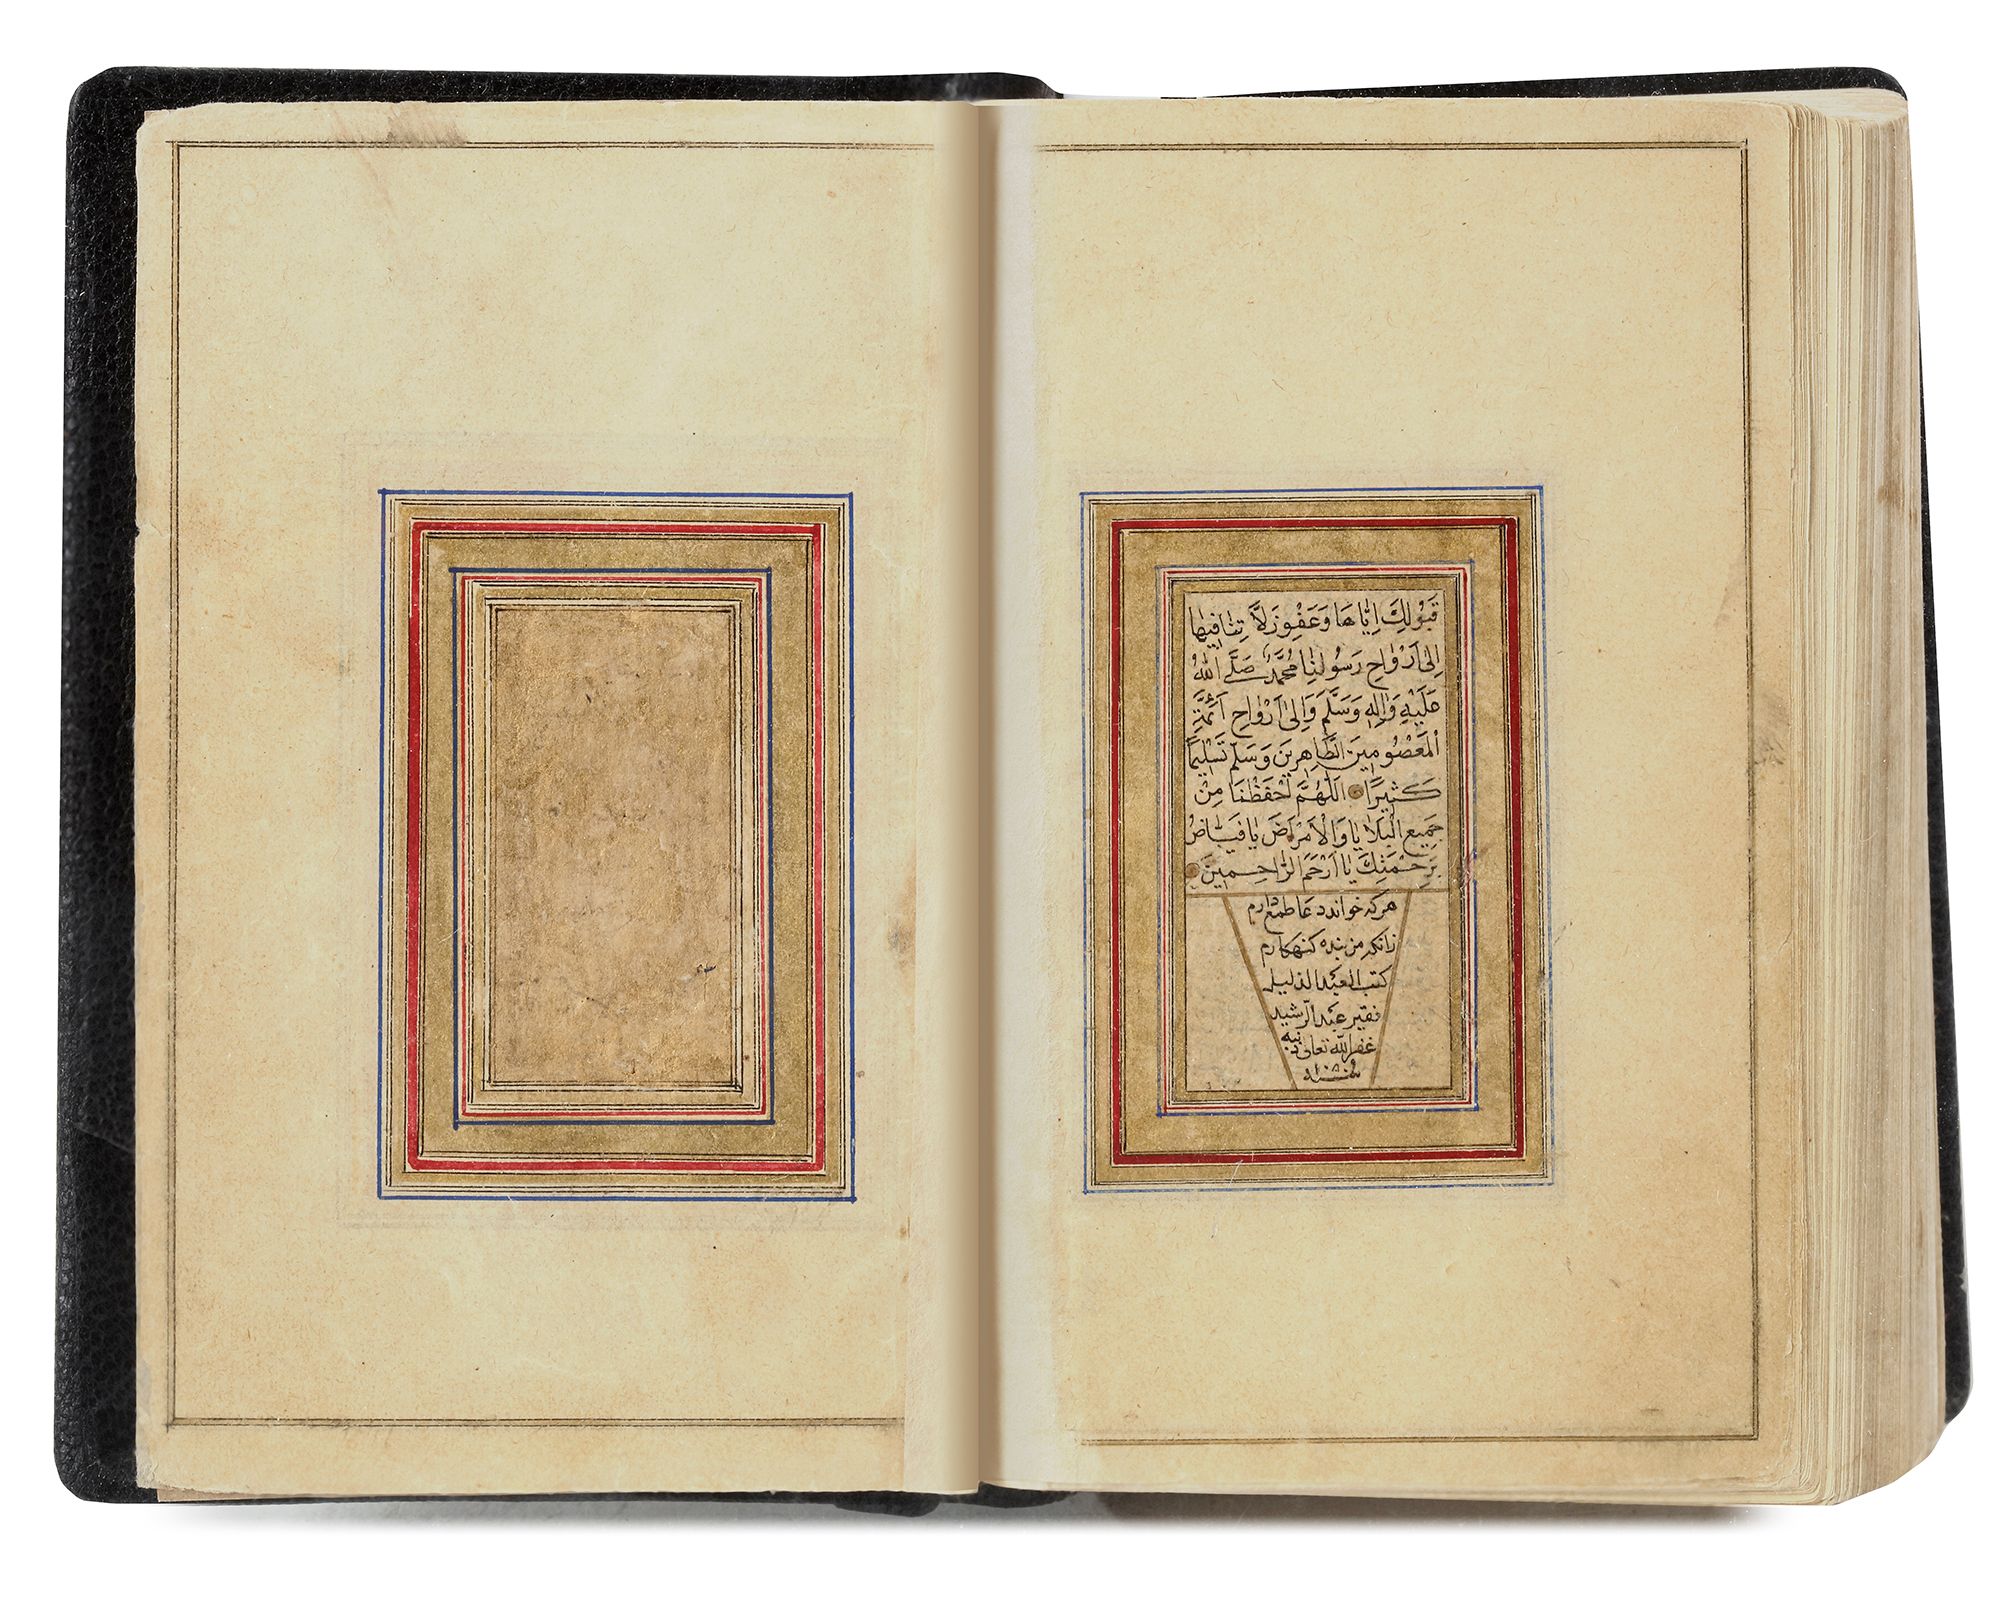 قَبُولِكَ اِيّاهَا وَعَفْوِزَلَّا تِنَافِيهَا
اِلىٰ اَرْوَاحِ رَسُولِنَا مُحَمَّدٍ صَلَّى اللّٰهُ
عَلَيْهِ وَاٰلِهِ وَسَلَّمَ وَاِلىٰ اَرْوَاحِ اَئمَّةِ
الْمَعْصُومِينَ الطَّاهِرِينَ وَسَلِّمْ تَسْلِيمًا
كَثِيرًا اَللّٰهُمَّ احْفَظْنَا مِنْ
جَمِيعِ الْبَلَايَا وَالْاَمْرَاضِ يَا فَيَّاضُ
بِرَحْمَتِكَ يَا اَرْحَمَ الرَّاحِمِينَ
هرکه خواند دعا طمع دارم
زانکه من بنده کنهکارم
کتب العبد الذلیل
فقیر عبد الرشید
غفر الله تعالی ذنبه